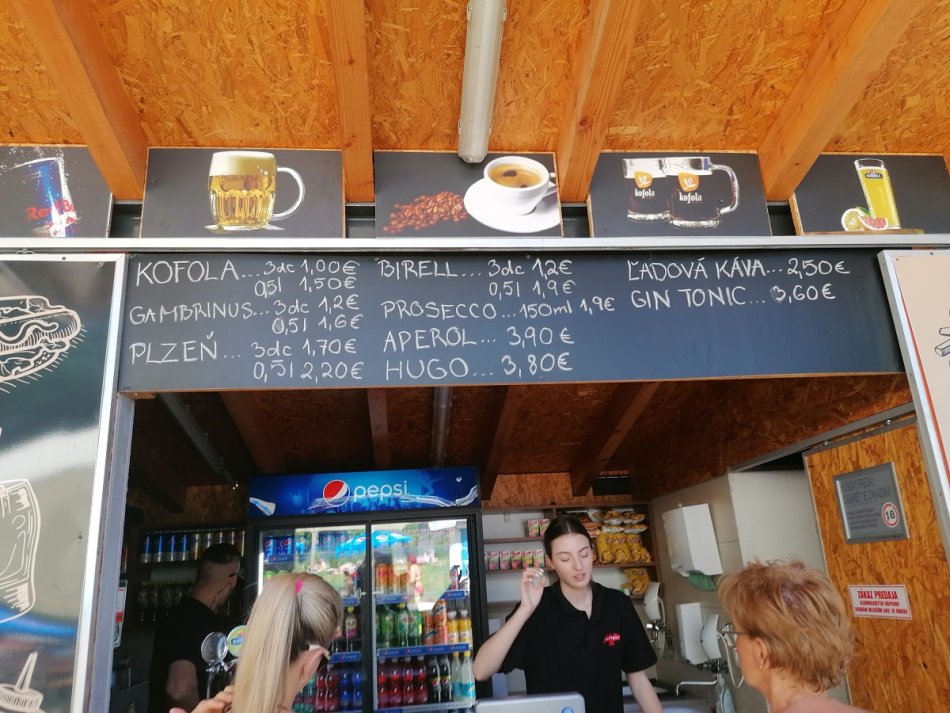 Red Bull
kofola
kofola
KOFOLA...3dc 1,00€
0,5l 1,50€
GAMBRINUS...3dc 1,2€
0,5l 1,6€
PLZEŇ...3dc 1,70€
0,5l 2,20€
BIRELL...3dc 1,2€
0,5l 1,9€
PROSECCO...150ml 1,9€
APEROL...3,90€
HUGO...3,80€
ĽADOVÁ KÁVA...2,50€
GIN TONIC...3,60€
pepsi
18
ZÁKAZ PREDAJA